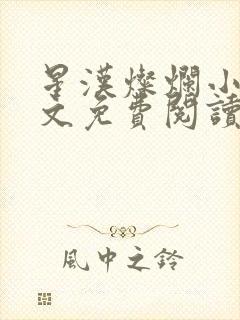 星漢燦爛小
文免費閱讀
風中之鈴